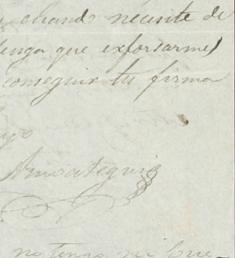 cuando necesite de
tenga que esforsarme
conseguir tu firma
no tengo ni